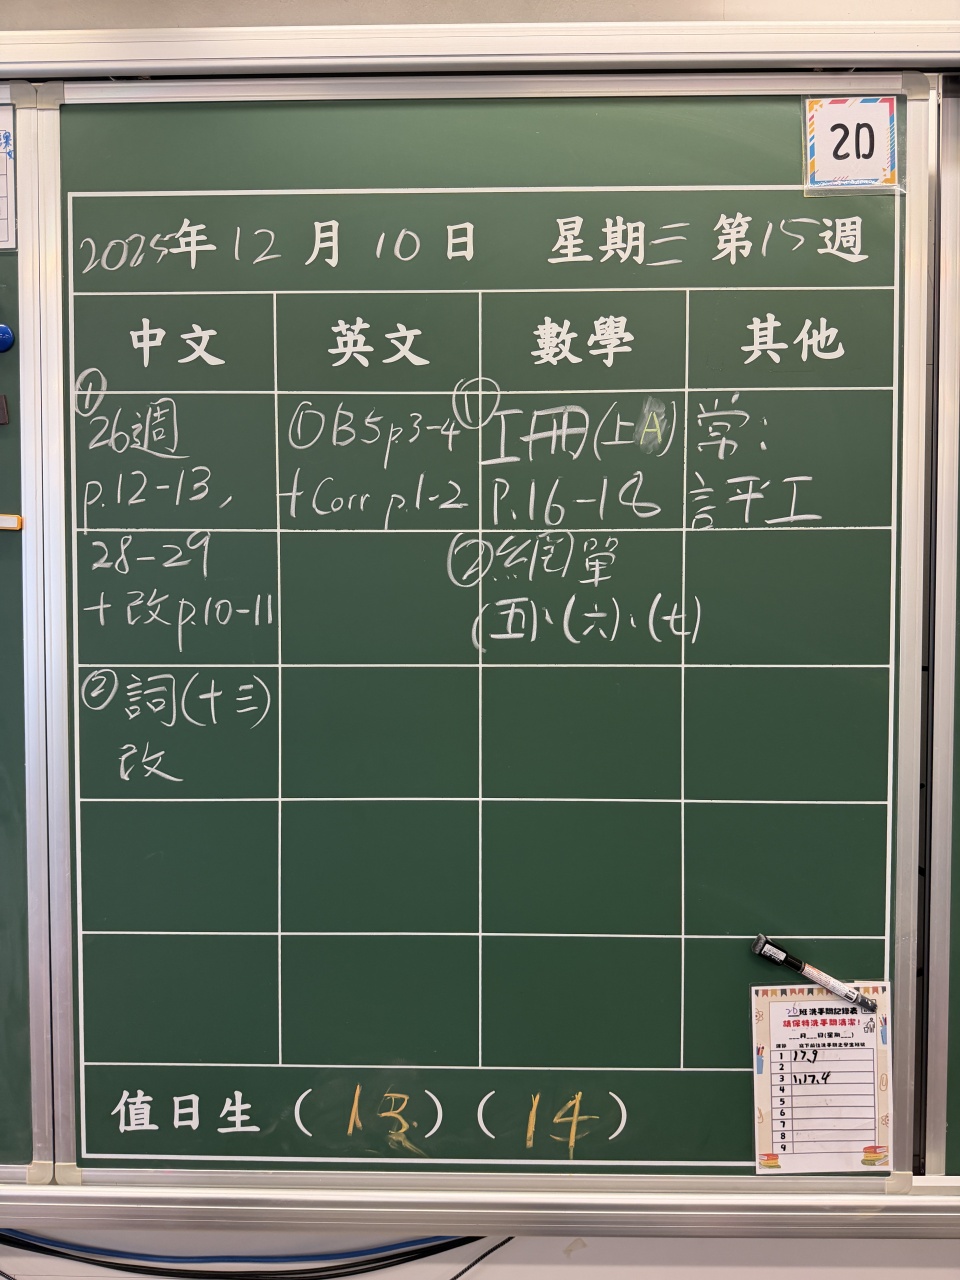 2D
2025年12月10日 星期三 第15週
中文 英文 數學 其他
① 26週
p.12-13,
28-29
+改p.10-11
② 詞(十三)
改
① B5 p.3-4
+Corr p.1-2
① 工冊(上A)
P.16-18
② 網單
(五)、(六)、(七)
常:
評工
值日生 (13) (14)
2D班洗手間記錄表
請保持洗手間清潔!
___月___日(星期___)
1 17,9
2
3 1,17,4
4
5
6
7
8
9